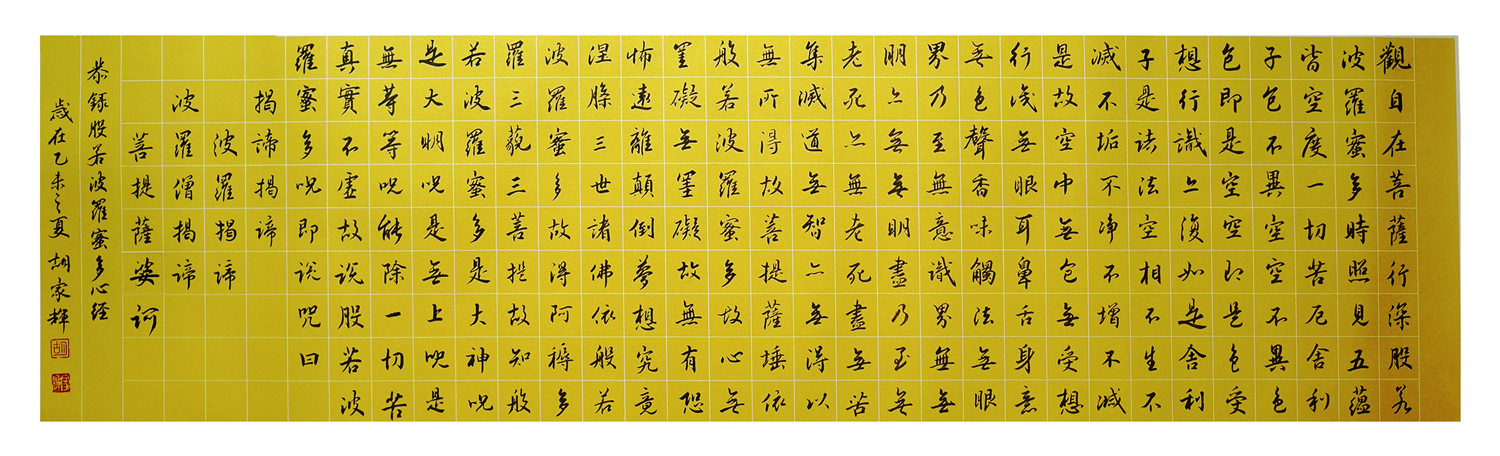 觀自在菩薩行深般若
波羅蜜多時照見五蘊
皆空度一切苦厄舍利
子色不異空空不異色
色即是空空即是色受
想行識亦復如是舍利
子是諸法空相不生不
滅不垢不净不增不減
是故空中無色無受想
行識無眼耳鼻舌身意
無色聲香味觸法無眼
界乃至無意識界無無
明亦無無明盡乃至無
老死亦無老死盡無苦
集滅道無智亦無得以
無所得故菩提薩埵依
般若波羅蜜多故心無
罣礙無罣礙故無有恐
怖遠離顛倒夢想究竟
涅槃三世諸佛依般若
波羅蜜多故得阿耨多
羅三藐三菩提故知般
若波羅蜜多是大神呪
是大明呪是無上呪是
無等等呪能除一切苦
真實不虛故說般若波
羅蜜多呪即說咒曰
揭諦揭諦
波羅揭諦
波羅僧揭諦
菩提薩婆訶
恭錄般若波羅蜜多心經
歲在乙未之夏胡家輝